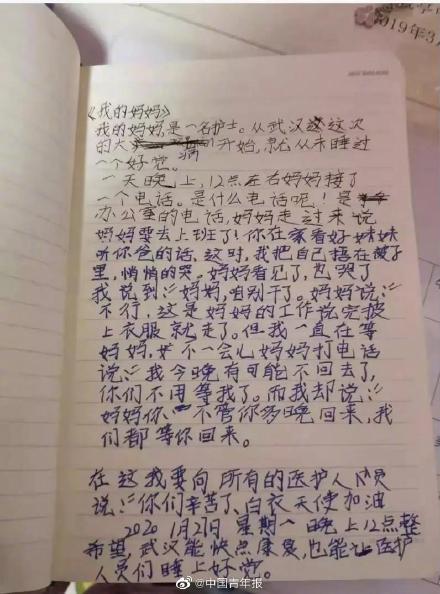 2019年3月
《我的妈妈》
我的妈妈,是一名护士。从武汉这次
的大 病开始,就从未睡过
一个好觉。
一天晚上,12点左右妈妈接了
一个电话。是什么电话呢!是
办公室的电话,妈妈走过来说
妈妈要去上班了!你在家看好妹妹
听你爸的话,这时,我把自己捂在被子
里,悄悄的哭。妈妈看见了,也哭了
我说到:“妈妈,咱别干了。妈妈说:“
不行,这是妈妈的工作说完披
上衣服就走了。但我一直在等
妈妈,不一会儿妈妈打电话
说:“我今晚有可能不回去了,
你们不用等我了。而我却说:“
妈妈你 不管你多晚回来,我
们都等你回来。
在这我要向所有的医护人员
说:“你们辛苦了、白衣天使加油
2020 1月21日 星期一 晚上12点整
希望,武汉能快点康复,也能让医护
人员们睡上好觉。
@中国青年报